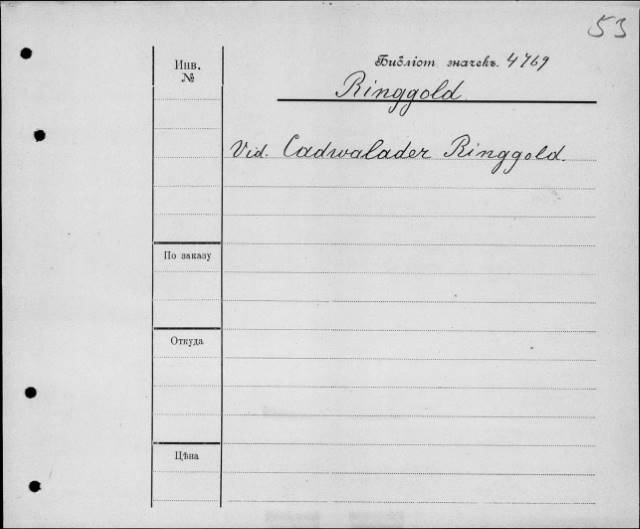 53
Инв.
№
Библіот. значекъ. 4769
Ringgold
Vid. Cadwalader Ringgold.
По заказу
Откуда
Цѣна